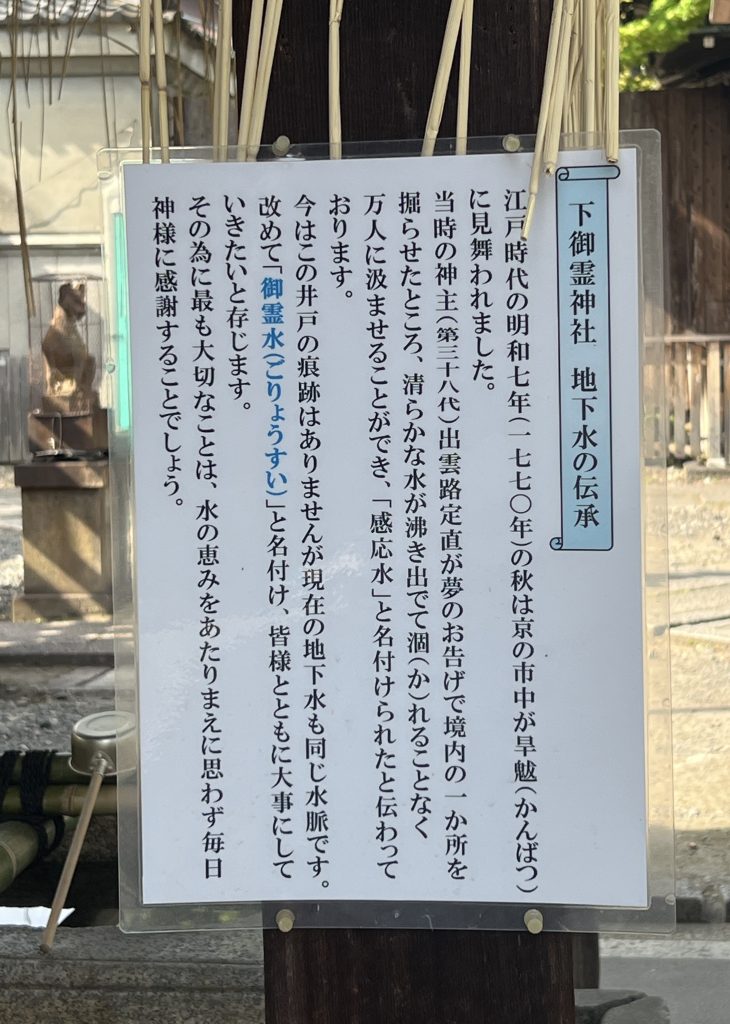 下御霊神社　地下水の伝承
江戸時代の明和七年(一七七〇年)の秋は京の市中が旱魃(かんばつ)
に見舞われました。
当時の神主(第三十八代)出雲路定直が夢のお告げで境内の一か所を
掘らせたところ、清らかな水が沸き出でて涸(か)れることなく
万人に汲ませることができ、「感応水」と名付けられたと伝わって
おります。
今はこの井戸の痕跡はありませんが現在の地下水も同じ水脈です。
改めて「御霊水(ごりょうすい)」と名付け、皆様とともに大事にして
いきたいと存じます。
その為に最も大切なことは、水の恵みをあたりまえに思わず毎日
神様に感謝することでしょう。